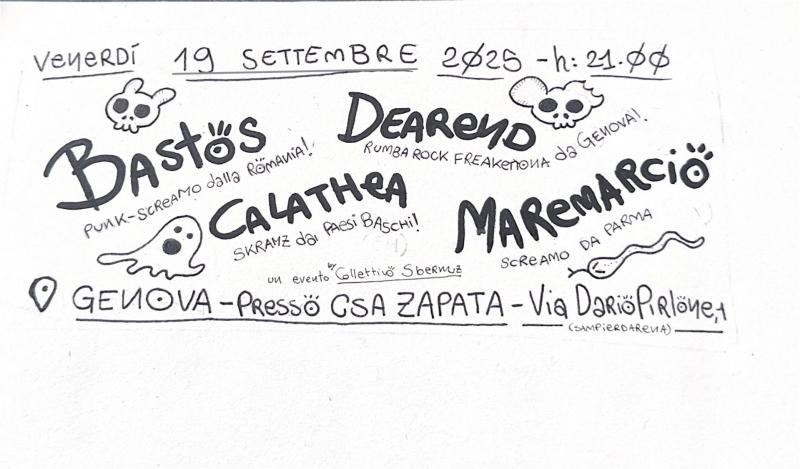 VENERDÍ 19 SETTEMBRE 2025 - h: 21.00
BASTöS
PUNK-SCREAMO dalla RÖMANIA!
DEAREND
RUMBA ROCK FREAKENONA da GENOVA!
CALATHEA
SKRAMZ dai PAESI BASCHI!
MAREMARCIÖ
SCREAMO DA PARMA
un evento by Collettivo Sbernuz
GENOVA - PRESSÖ CSA ZAPATA - Via DARIÖ PIRLÖNE, 1
(SAMPIERDARENA)